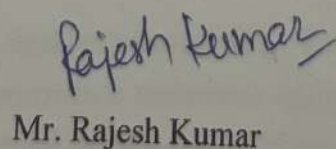 Rajesh Kumar
Mr. Rajesh Kumar